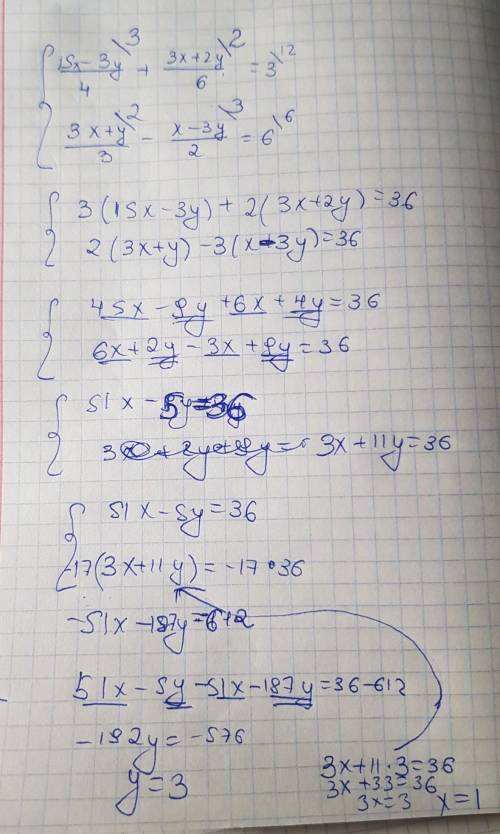 { (15x-3y)/4 \3 + (3x+2y)/6 \2 = 3 \12
(3x+y)/3 \2 - (x-3y)/2 \3 = 6 \6
{ 3(15x-3y)+2(3x+2y)=36
2(3x+y)-3(x-3y)=36
{ 45x-9y+6x+4y=36
6x+2y-3x+9y=36
{ 51x-5y=36
3x+11y=36
{ 51x-5y=36
-17(3x+11y)=-17·36
-51x-187y=-612
51x-5y-51x-187y=36-612
-192y=-576
y=3
3x+11·3=36
3x+33=36
3x=3 x=1